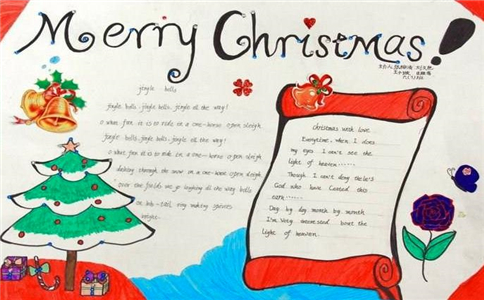 Merry Christmas!
jingle bells
jingle bells, jingle bells, jingle all the way!
O what fun it is to ride in a one-horse open sleigh
jingle bells, jingle bells, jingle all the way!
O what fun it is to ride in a one-horse open sleigh
dashing through the snow in a one-horse open sleigh
over the fields we go laughing all the way bells
on bob-tail, ring making spirits
bright.
Christmas wish love
Everytime when I close
my eyes I can't see the
light of heaven
Though I can't along the
God who have
each
Day by day month by month
I'm very the
light of heaven.